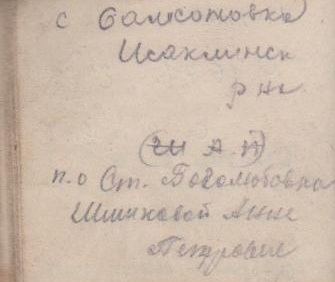 с Самсоновка
Исаклинск
р не
(Ш А П)
п.о Ст. Боголюбовка
Шишковой Анне
Петровне